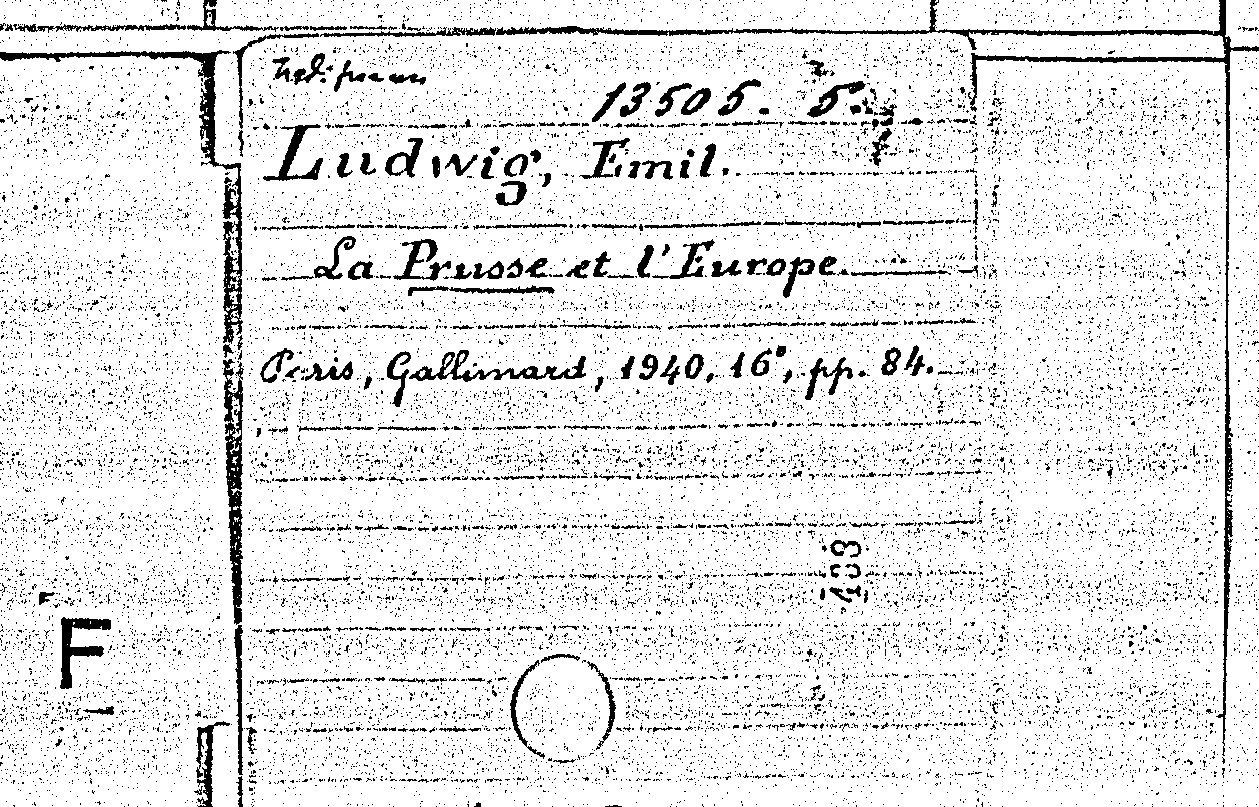 13505. 5.
Ludwig, Emil.
La Prusse et l'Europe.
Paris, Gallimard, 1940, 16°, pp. 84.
433
F